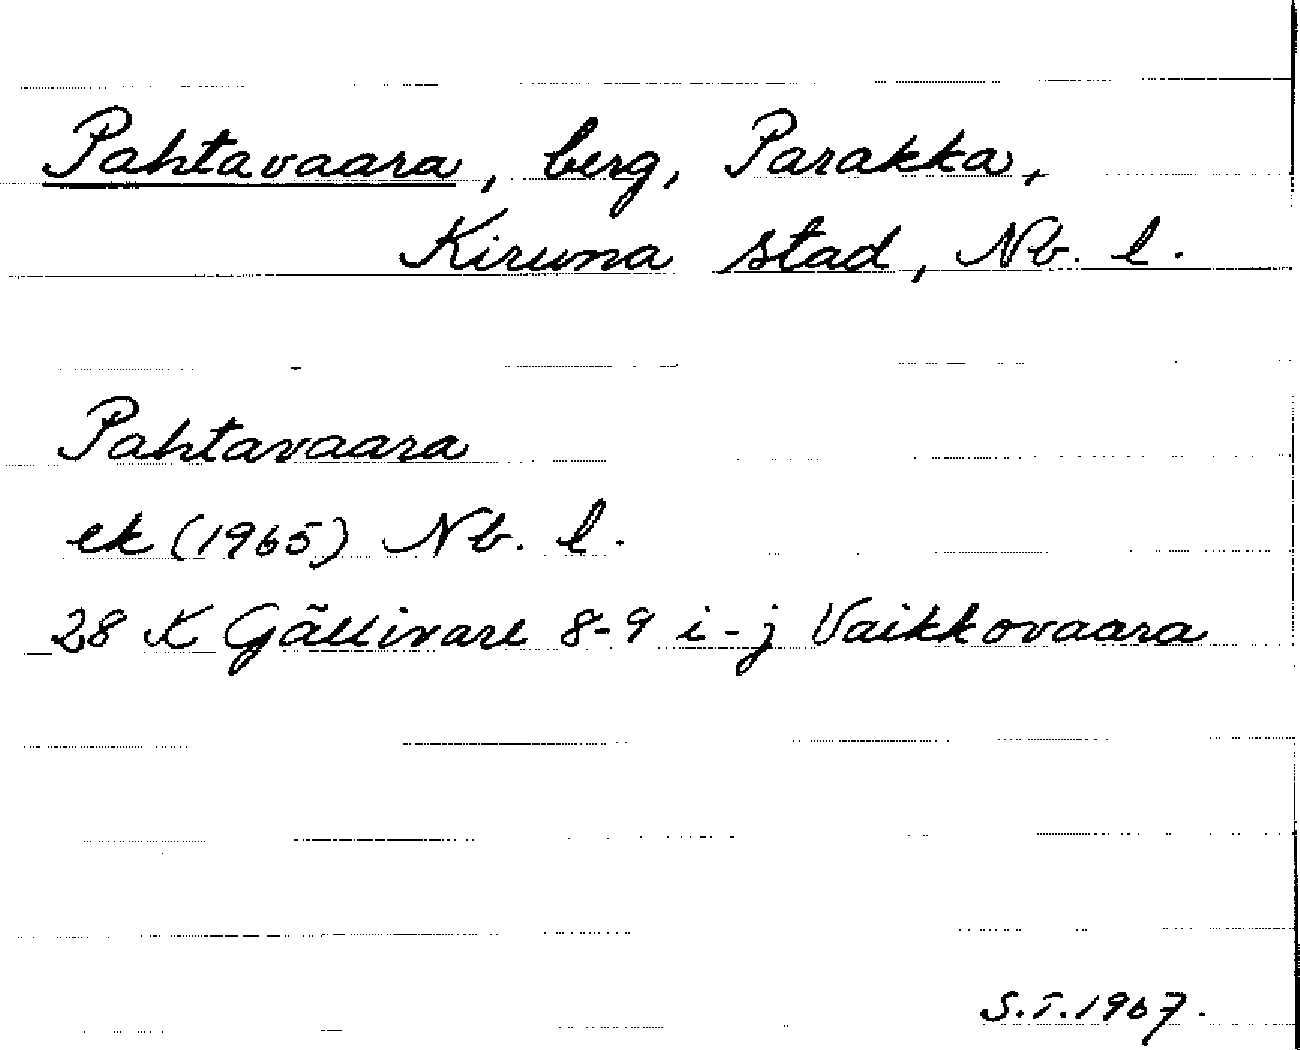 Pahtavaara, berg, Parakka,
Kiruna stad, Nb. l.
Pahtavaara
ek (1965) Nb. l.
28 K Gällivare 8-9 i-j Vaikkovaara
S.T.1967.